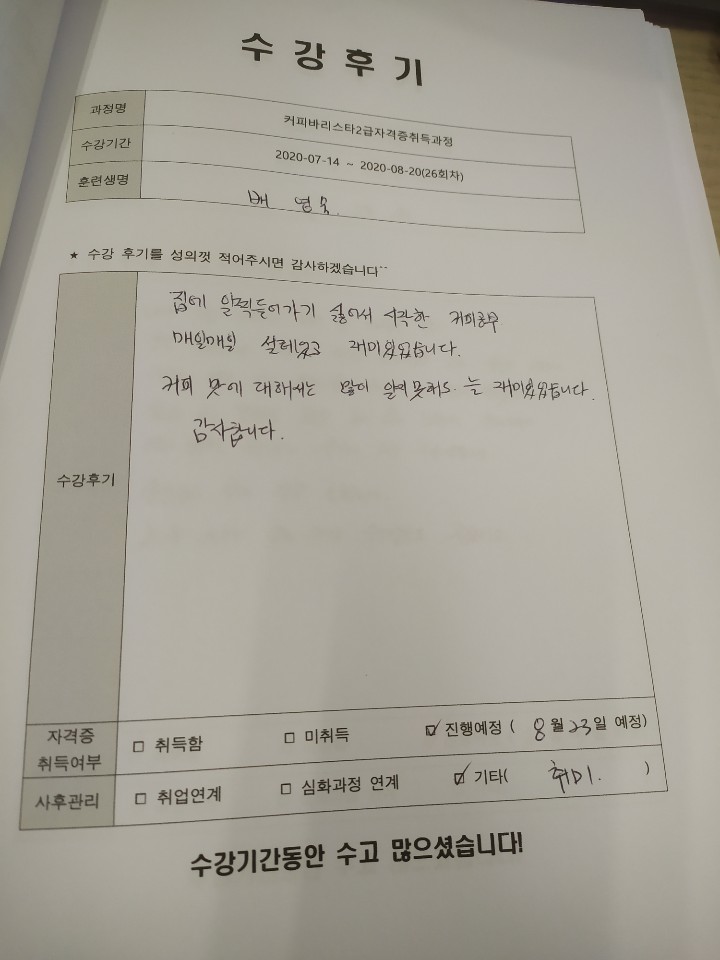 수 강 후 기
과정명 커피바리스타2급자격증취득과정
수강기간 2020-07-14 ~ 2020-08-20(26회차)
훈련생명 배 영숙
★ 수강 후기를 성의껏 적어주시면 감사하겠습니다^^
집에 일찍들어가기 싫어서 시작한 커피공부
매일매일 설레었고 재미있었습니다.
커피 맛에 대해서는 많이 알지못해도. 늘 재미있었습니다.
감사합니다.
수강후기
자격증
취득여부 □ 취득함 □ 미취득 ☑ 진행예정 ( 8월 23일 예정)
사후관리 □ 취업연계 □ 심화과정 연계 ☑ 기타( 취미. )
수강기간동안 수고 많으셨습니다!